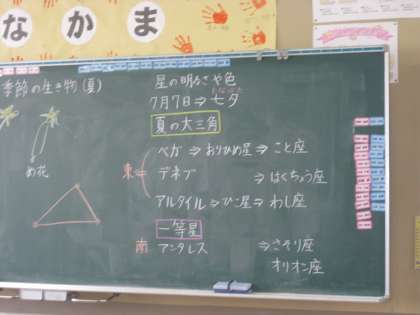 なかま
季節の生き物(夏)
め花
星の明るさや色
たなばた
7月7日⇒七夕
夏の大三角
東
ベガ⇒おりひめ星⇒こと座
デネブ⇒はくちょう座
アルタイル⇒ひこ星⇒わし座
一等星
南 アンタレス⇒さそり座
オリオン座